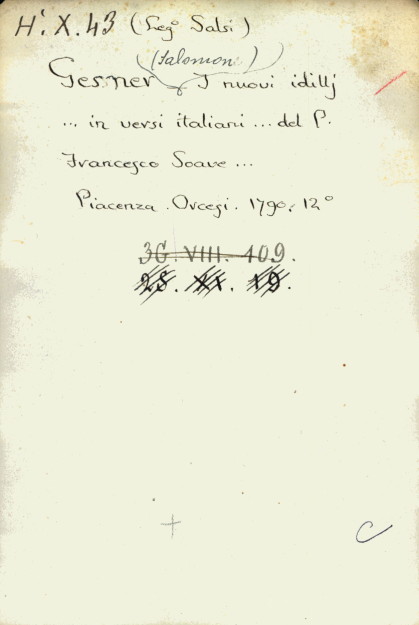 H'. X. 43 (Leg° Salsi)
(Salomone)
Gesner I nuovi idillj
... in versi italiani ... del P.
Francesco Soave ...
Piacenza. Orcesi. 1790. 12°
3G. VIII. 409.
28. XX. 19.
C